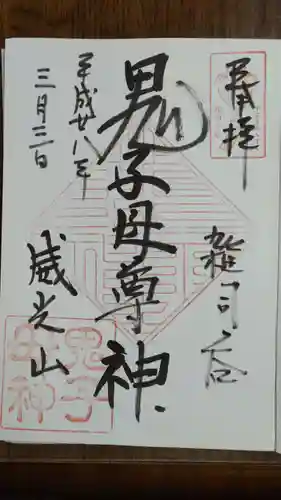 奉拝
雑司ヶ谷
鬼子母尊神
威光山
平成廿八年
三月三日
鬼子
母神